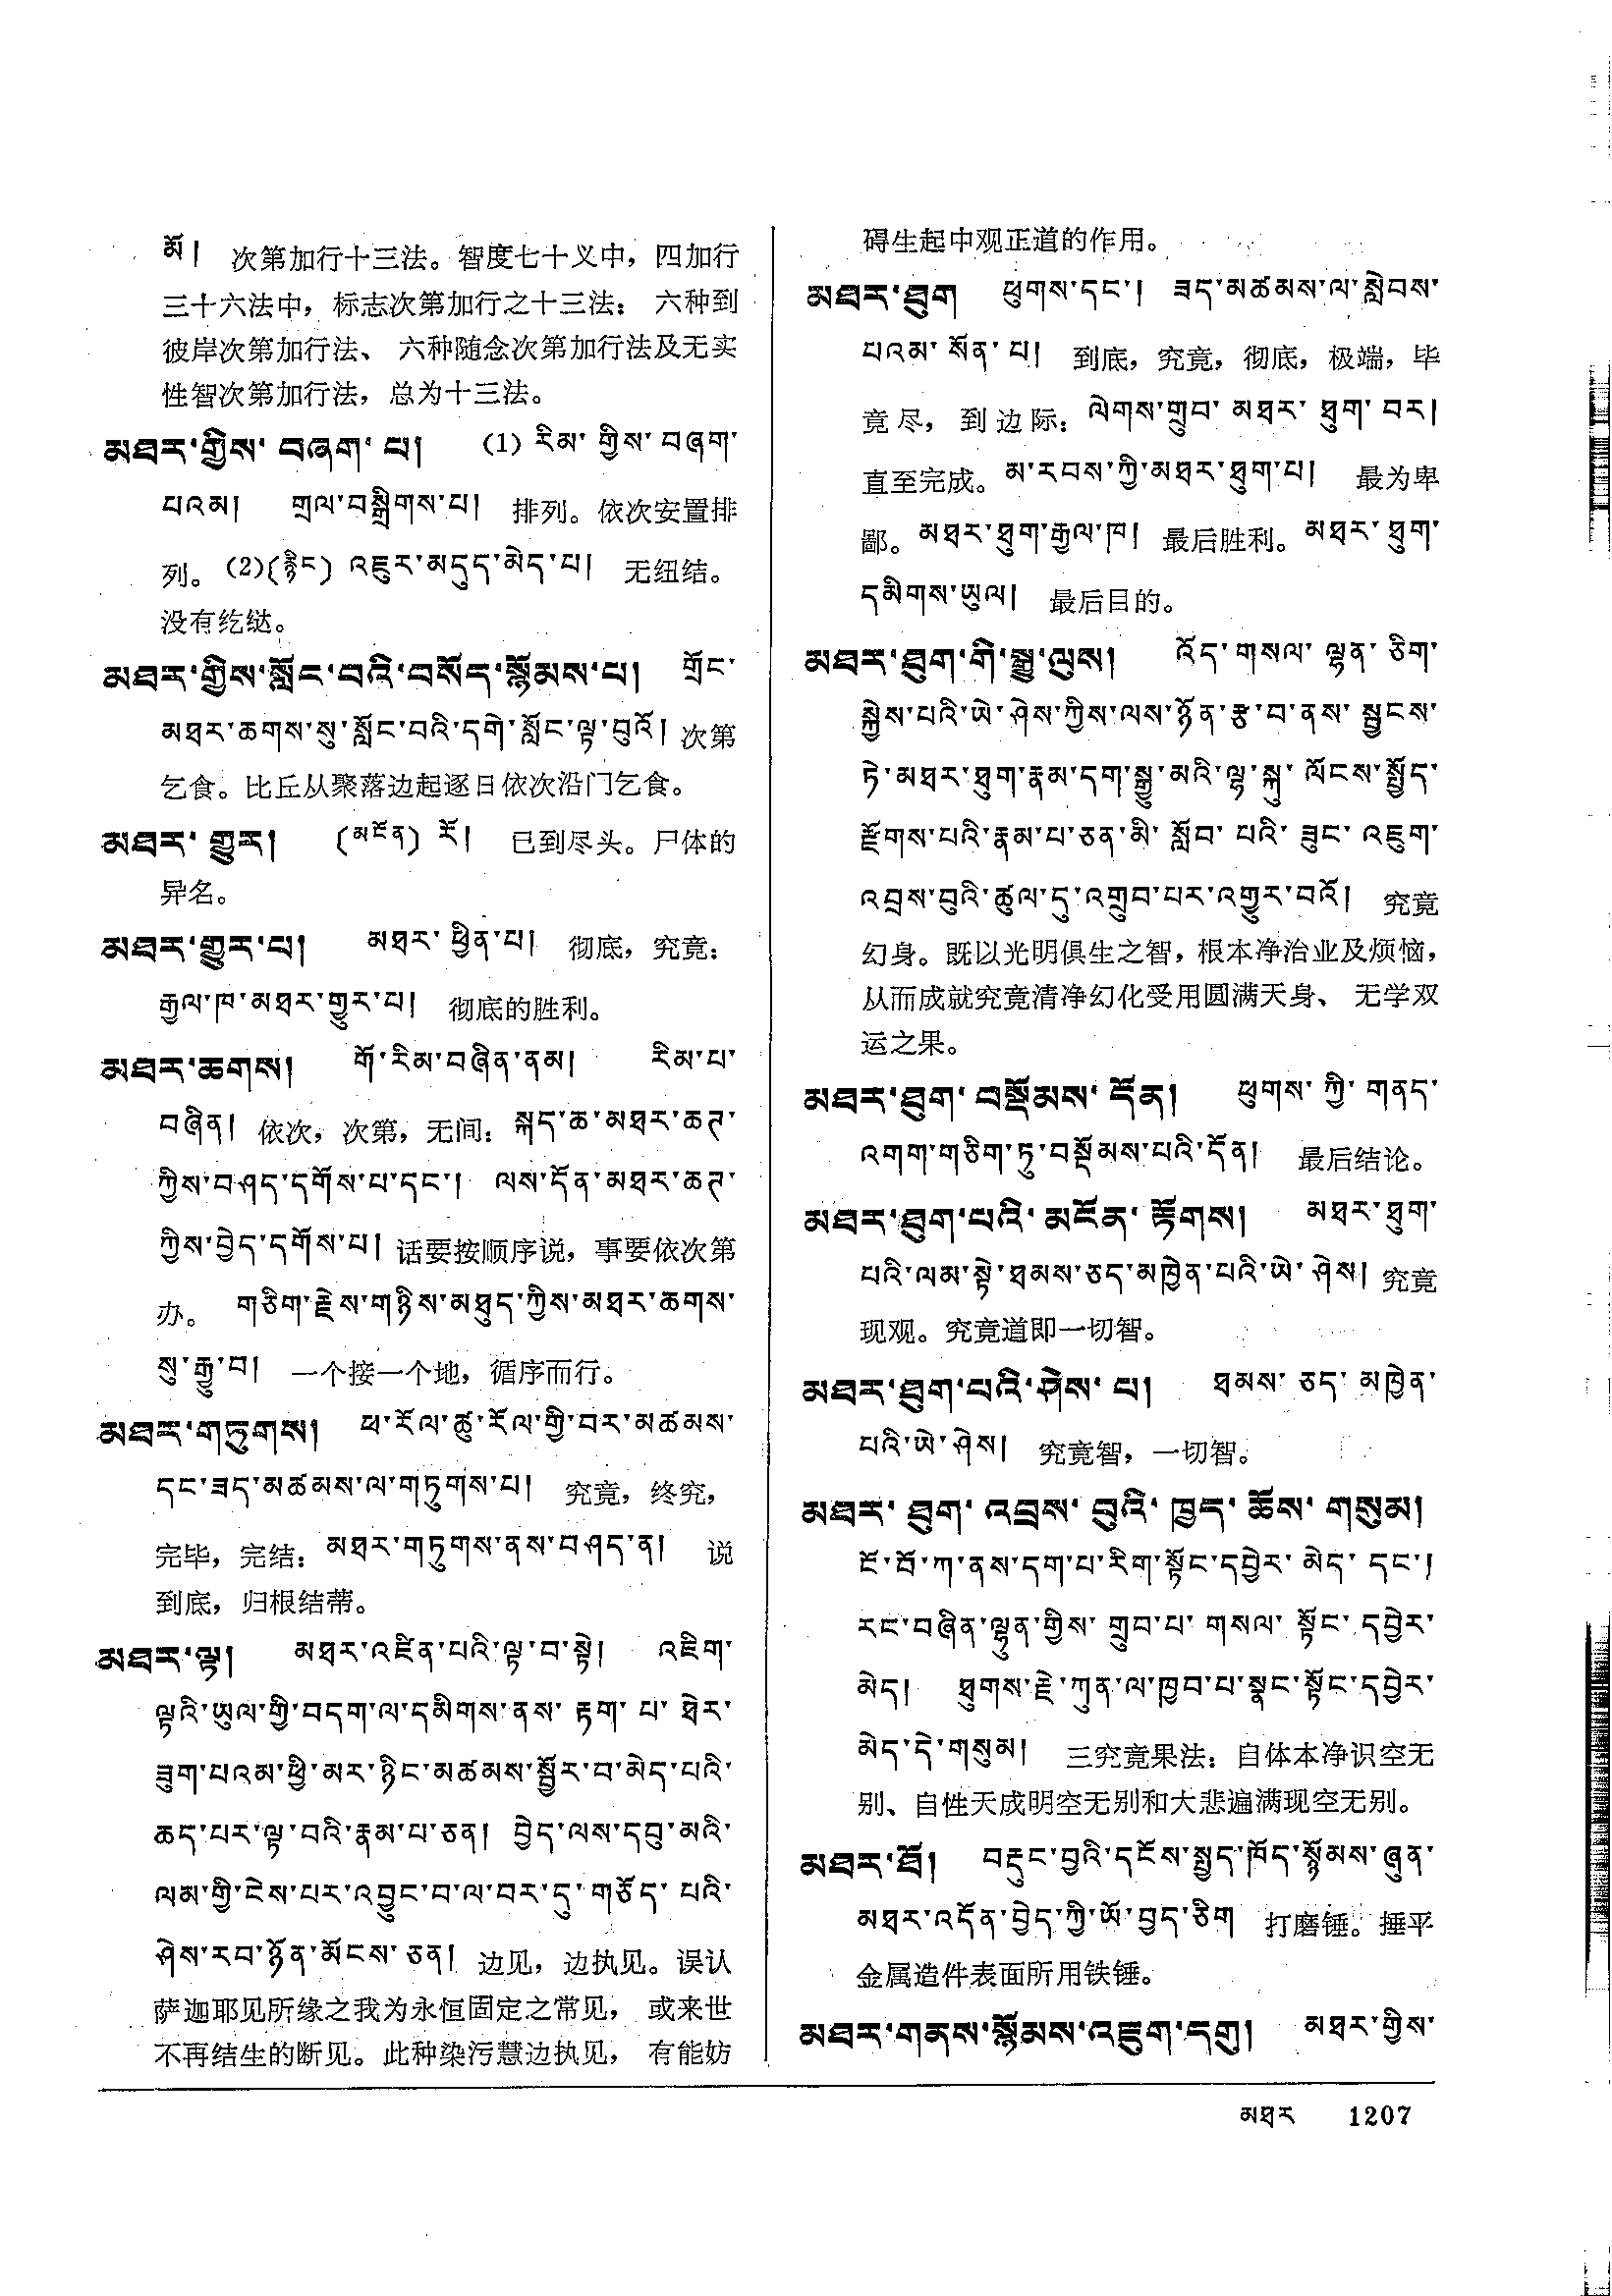 མོ། 次第加行十三法。智度七十义中，四加行
三十六法中，标志次第加行之十三法：六种到
彼岸次第加行法、六种随念次第加行法及无实
性智次第加行法，总为十三法。
མཐར་གྱིས་བཞག་པ། (1) རིམ་གྱིས་བཞག་
པའམ། གྲལ་བསྒྲིགས་པ། 排列。依次安置排
列。(2)(རྙིང) འཛུར་མདུད་མེད་པ། 无纽结。
没有纥𬘘。
མཐར་གྱིས་སློང་བའི་བསོད་སྙོམས་པ། གྲོང་
མཐར་ཆགས་སུ་སློང་བའི་དགེ་སློང་ལྟ་བུའོ། 次第
乞食。比丘从聚落边起逐日依次沿门乞食。
མཐར་གྱུར། (མངོན) རོ། 已到尽头。尸体的
异名。
མཐར་གྱུར་པ། མཐར་ཕྱིན་པ། 彻底，究竟：
རྒྱལ་ཁ་མཐར་གྱུར་པ། 彻底的胜利。
མཐར་ཆགས། གོ་རིམ་བཞིན་ནམ། རིམ་པ་
བཞིན། 依次，次第，无间：སྐད་ཆ་མཐར་ཆཊ་
ཀྱིས་བཤད་དགོས་པ་དང་། ལས་དོན་མཐར་ཆཊ་
ཀྱིས་བྱེད་དགོས་པ། 话要按顺序说，事要依次第
办。 གཅིག་རྗེས་གཉིས་མཐུད་ཀྱིས་མཐར་ཆགས་
སུ་རྒྱུ་བ། 一个接一个地，循序而行。
མཐར་གཏུགས། ཕ་རོལ་ཚུ་རོལ་གྱི་བར་མཚམས་
དང་ཟད་མཚམས་ལ་གཏུགས་པ། 究竟，终究，
完毕，完结：མཐར་གཏུགས་ནས་བཤད་ན། 说
到底，归根结蒂。
མཐར་ལྟ། མཐར་འཛིན་པའི་ལྟ་བ་སྟེ། འཇིག་
ལྟའི་ཡུལ་གྱི་བདག་ལ་དམིགས་ནས་རྟག་པ་ཐེར་
ཟུག་པའམ་ཕྱི་མར་ཉིང་མཚམས་སྦྱོར་བ་མེད་པའི་
ཆད་པར་ལྟ་བའི་རྣམ་པ་ཅན། བྱེད་ལས་དབུ་མའི་
ལམ་གྱི་ངེས་པར་འབྱུང་བ་ལ་བར་དུ་གཅོད་པའི་
ཤེས་རབ་ཉོན་མོངས་ཅན། 边见，边执见。误认
萨迦耶见所缘之我为永恒固定之常见，或来世
不再结生的断见。此种染污慧边执见，有能妨
碍生起中观正道的作用。
མཐར་ཐུག ཕུགས་དང་། ཟད་མཚམས་ལ་སླེབས་
པའམ་སོན་པ། 到底，究竟，彻底，极端，毕
竟尽，到边际：ལེགས་གྲུབ་མཐར་ཐུག་བར།
直至完成。མ་རབས་ཀྱི་མཐར་ཐུག་པ། 最为卑
鄙。མཐར་ཐུག་རྒྱལ་ཁ། 最后胜利。མཐར་ཐུག་
དམིགས་ཡུལ། 最后目的。
མཐར་ཐུག་གི་སྒྱུ་ལུས། འོད་གསལ་ལྷན་ཅིག་
སྐྱེས་པའི་ཡེ་ཤེས་ཀྱིས་ལས་ཉོན་རྩ་བ་ནས་སྦྱངས་
ཏེ་མཐར་ཐུག་རྣམ་དག་སྒྱུ་མའི་ལྷ་སྐུ་ལོངས་སྤྱོད་
རྫོགས་པའི་རྣམ་པ་ཅན་མི་སློབ་པའི་ཟུང་འཇུག་
འབྲས་བུའི་ཚུལ་དུ་འགྲུབ་པར་འགྱུར་བའོ། 究竟
幻身。既以光明俱生之智，根本净治业及烦恼，
从而成就究竟清净幻化受用圆满天身、无学双
运之果。
མཐར་ཐུག་བསྡོམས་དོན། ཕུགས་ཀྱི་གནད་
འགག་གཅིག་ཏུ་བསྡོམས་པའི་དོན། 最后结论。
མཐར་ཐུག་པའི་མངོན་རྟོགས། མཐར་ཐུག་
པའི་ལམ་སྟེ་ཐམས་ཅད་མཁྱེན་པའི་ཡེ་ཤེས། 究竟
现观。究竟道即一切智。
མཐར་ཐུག་པའི་ཤེས་པ། ཐམས་ཅད་མཁྱེན་
པའི་ཡེ་ཤེས། 究竟智，一切智。
མཐར་ཐུག་འབྲས་བུའི་ཁྱད་ཆོས་གསུམ།
ངོ་བོ་ཀ་ནས་དག་པ་རིག་སྟོང་དབྱེར་མེད་དང་།
རང་བཞིན་ལྷུན་གྱིས་གྲུབ་པ་གསལ་སྟོང་དབྱེར་
མེད། ཐུགས་རྗེ་ཀུན་ལ་ཁྱབ་པ་སྣང་སྟོང་དབྱེར་
མེད་དེ་གསུམ། 三究竟果法：自体本净识空无
别、自性天成明空无别和大悲遍满现空无别。
མཐར་ཐོ། བརྡུང་བྱའི་དངོས་སྤྱད་ཁོད་སྙོམས་ཞུན་
མཐར་འདོན་བྱེད་ཀྱི་ཡོ་བྱད་ཅིག 打磨锤。捶平
金属造件表面所用铁锤。
མཐར་གནས་སྙོམས་འཇུག་དགུ། མཐར་གྱིས་
མཐར 1207